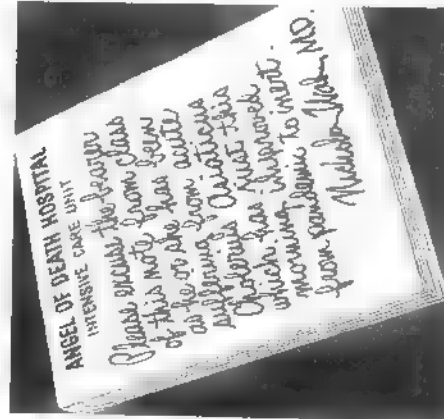 ANGEL OF DEATH HOSPITAL
INTENSIVE CARE UNIT
Please excuse the bearer
of this note from class
as he or she has been
suffering from acute
Cholerus Asiaticus
which just this
morning has improved
from pandemic to inert.
MD.